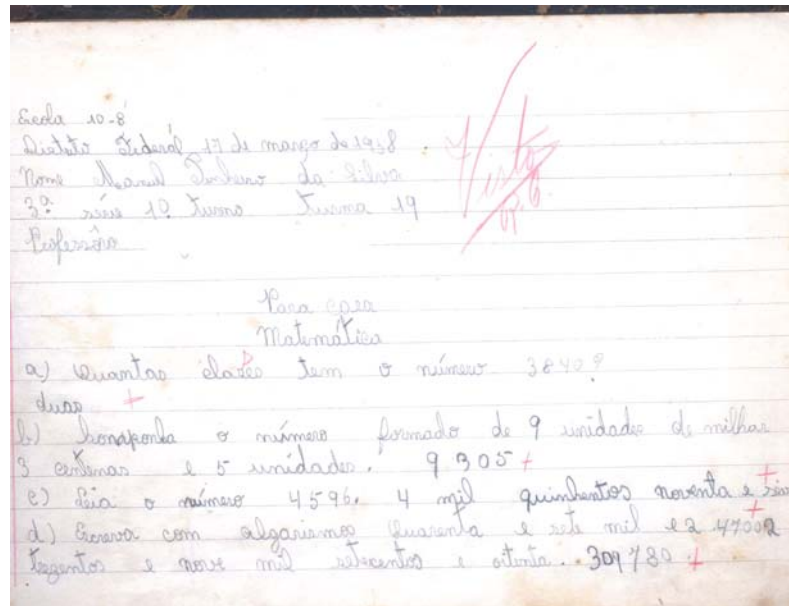 Escola 10-8
Distrito Federal, 17 de março de 1958
Nome Manuel Pinheiro da Silva
3ª série 1º Turno Turma 19
Professôra
Visto
Para casa
Matemática
a) Quantas classes tem o número 3840?
duas +
b) Componha o número formado de 9 unidades de milhar
3 centenas e 5 unidades. 9 305 +
c) Leia o número 4596. 4 mil quinhentos noventa e seis +
d) Escreva com algarismos Quarenta e sete mil e 2 47002 +
trezentos e nove mil setecentos e oitenta. 309 780 +